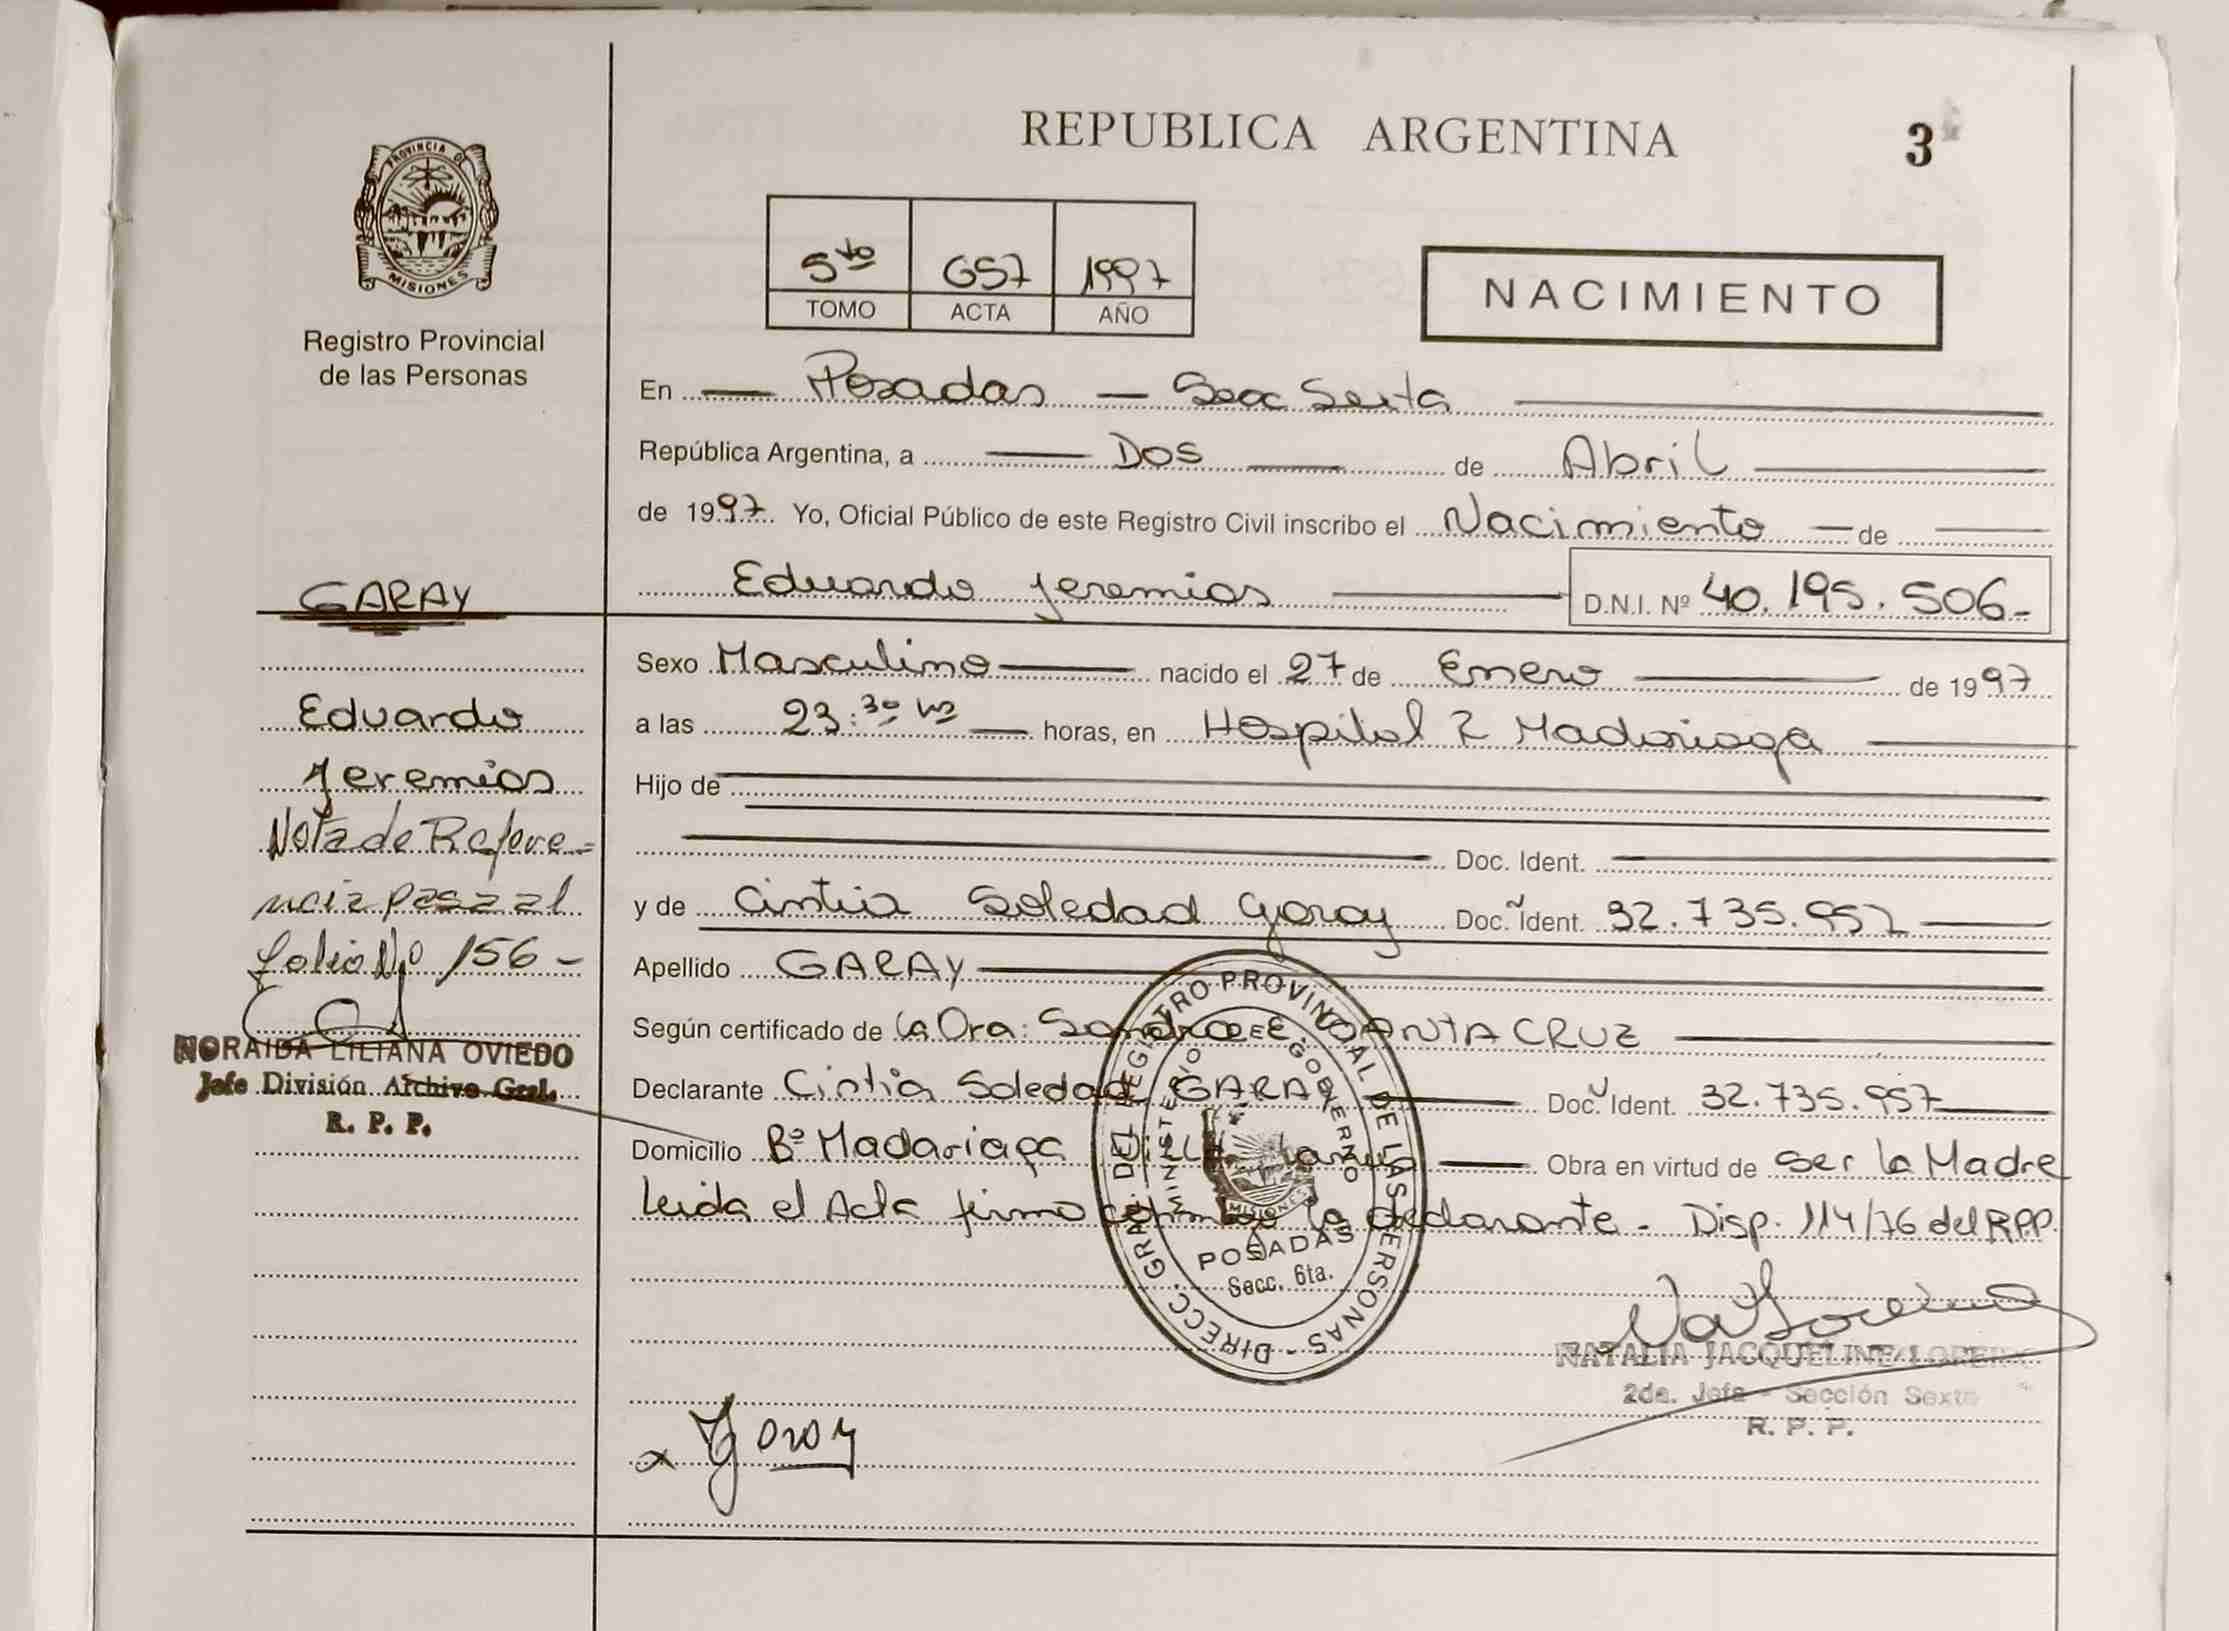 REPUBLICA ARGENTINA
3
PROVINCIA DE
MISIONES
Registro Provincial
de las Personas
5to 657 1997
TOMO ACTA AÑO
NACIMIENTO
En Posadas - Secc Sexta
República Argentina, a Dos de Abril
de 1997 Yo, Oficial Público de este Registro Civil inscribo el Nacimiento de
Eduardo Jeremias D.N.I. Nº 40.195.506-
Sexo Masculino nacido el 27 de Enero de 1997
a las 23:30 hs horas, en Hospital R Madariaga
Hijo de
Doc. Ident.
y de Cintia Soledad Garay Doc. Ident. 32.735.957
Apellido GARAY
Según certificado de la Dra: Sandra E. SANTA CRUZ
Declarante Cintia Soledad GARAY Doc. Ident. 32.735.957
Domicilio Bº Madariaga Obra en virtud de ser la Madre
Leida el Acta firma la declarante - Disp. 114/76 del R.P.P.
GARAY
Eduardo
Jeremias
Nota de Refere=
ncia pasa al
folio Nº 156-
NORAIDA LILIANA OVIEDO
Jefe División Archivo Gral.
R. P. P.
DIRECC. GRAL. DEL REGISTRO PROVINCIAL DE LAS PERSONAS -
MINISTERIO DE GOBIERNO
MISIONES
POSADAS
Secc. 6ta.
NATALIA JACQUELINE
2da. Jefa - Sección Sexta
R. P. P.
x Garay